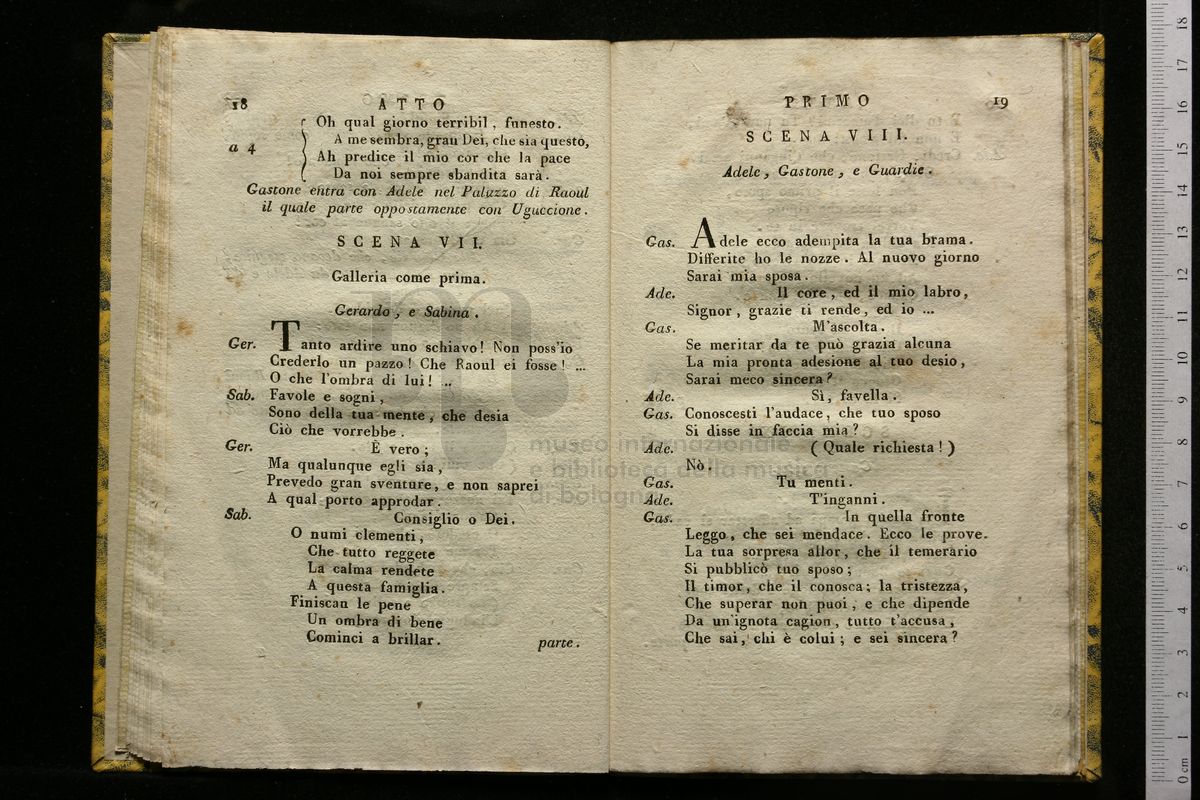 18 ATTO
Oh qual giorno terribil, funesto.
A me sembra, gran Dei, che sia questo,
a 4
Ah predice il mio cor che la pace
Da noi sempre sbandita sarà.
Gastone entra con Adele nel Palazzo di Raoul
il quale parte oppostamente con Uguccione.
SCENA VII.
Galleria come prima.
Gerardo, e Sabina.
Ger. Tanto ardire uno schiavo! Non poss'io
Crederlo un pazzo! Che Raoul ei fosse! ...
O che l'ombra di lui! ..
Sab. Favole e sogni,
Sono della tua mente, che desia
Ciò che vorrebbe.
Ger. È vero;
Ma qualunque egli sia,
Prevedo gran sventure, e non saprei
A qual porto approdar.
Sab. Consiglio o Dei.
O numi clementi,
Che tutto reggete
La calma rendete
A questa famiglia.
Finiscan le pene
Un ombra di bene
Cominci a brillar. parte.
PRIMO 19
SCENA VIII.
Adele, Gastone, e Guardie.
Gas. Adele ecco adempita la tua brama.
Differite ho le nozze. Al nuovo giorno
Sarai mia sposa.
Ade. Il core, ed il mio labro,
Signor, grazie ti rende, ed io ...
Gas. M'ascolta.
Se meritar da te può grazia alcuna
La mia pronta adesione al tuo desio,
Sarai meco sincera?
Ade. Sì, favella.
Gas. Conoscesti l'audace, che tuo sposo
Si disse in faccia mia?
Ade. (Quale richiesta!)
Nò.
Gas. Tu menti.
Ade. T'inganni.
Gas. In quella fronte
Leggo, che sei mendace. Ecco le prove.
La tua sorpresa allor, che il temerario
Si pubblicò tuo sposo;
Il timor, che il conosca; la tristezza,
Che superar non puoi, e che dipende
Da un'ignota cagion, tutto t'accusa,
Che sai, chi è colui; e sei sincera?
museo internazionale
e biblioteca della musica
di bologna
0 cm 1 2 3 4 5 6 7 8 9 10 11 12 13 14 15 16 17 18